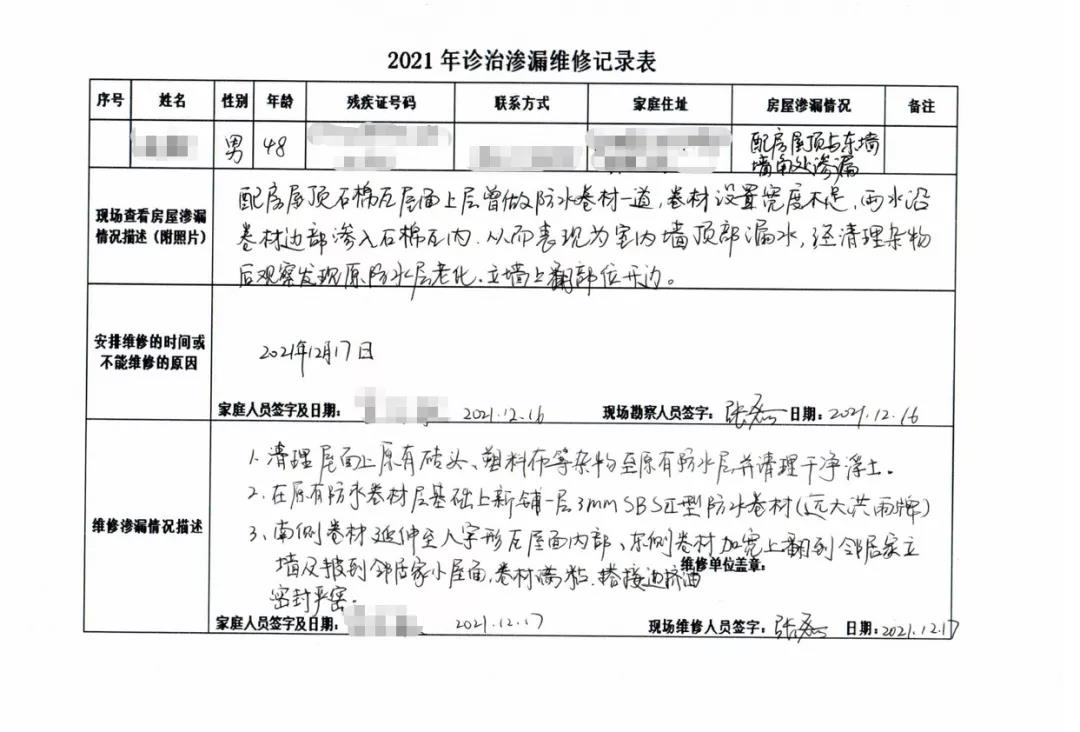 2021年诊治渗漏维修记录表
序号 姓名 性别 年龄 残疾证号码 联系方式 家庭住址 房屋渗漏情况 备注
男 48 配房屋顶与东墙
墙角处渗漏
现场查看房屋渗漏
情况描述（附照片）
配房屋顶石棉瓦屋面上层曾做防水卷材一道，卷材设置宽度不足，雨水沿
卷材边部渗入石棉瓦内，从而表现为室内墙顶部漏水，经清理杂物
后观察发现原防水层老化、立墙上翻部位开边。
安排维修的时间或
不能维修的原因
2021年12月17日
家庭人员签字及日期： 2021.12.16 现场勘察人员签字：张磊 日期：2021.12.16
维修渗漏情况描述
1.清理屋面上原有砖头、塑料布等杂物至原有防水层，并清理干净浮土。
2.在原有防水卷材层基础上新铺一层3mmSBSII型防水卷材(远大洪雨牌)
3、南侧卷材延伸至人字形瓦屋面内部、东侧卷材加宽上翻到邻居家立
墙及披到邻居家小屋面，卷材满粘、搭接边挤油
密封严密。
维修单位盖章：
家庭人员签字及日期： 2021.12.17 现场维修人员签字：张磊 日期：2021.12.17